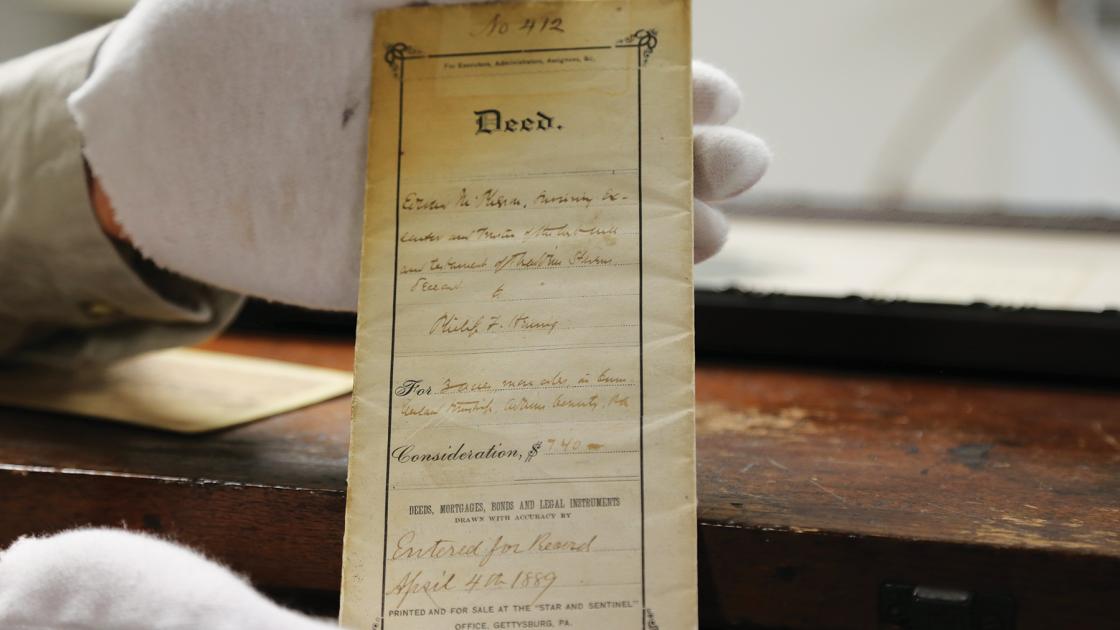 No 412
For Executors, Administrators, Assignees, &c.
Deed.
Edward McPherson, surviving ex-
ecutor and Trustee of the last will
and testament of Thaddeus Stevens
Deceased
to
Philip F.
For 3 acres more or less, in Cum-
berland Township, Adams County, Pa
Consideration, $ 740
DEEDS, MORTGAGES, BONDS AND LEGAL INSTRUMENTS
DRAWN WITH ACCURACY BY
Entered for Record
April 4th 1889
PRINTED AND FOR SALE AT THE "STAR AND SENTINEL"
OFFICE, GETTYSBURG, PA.